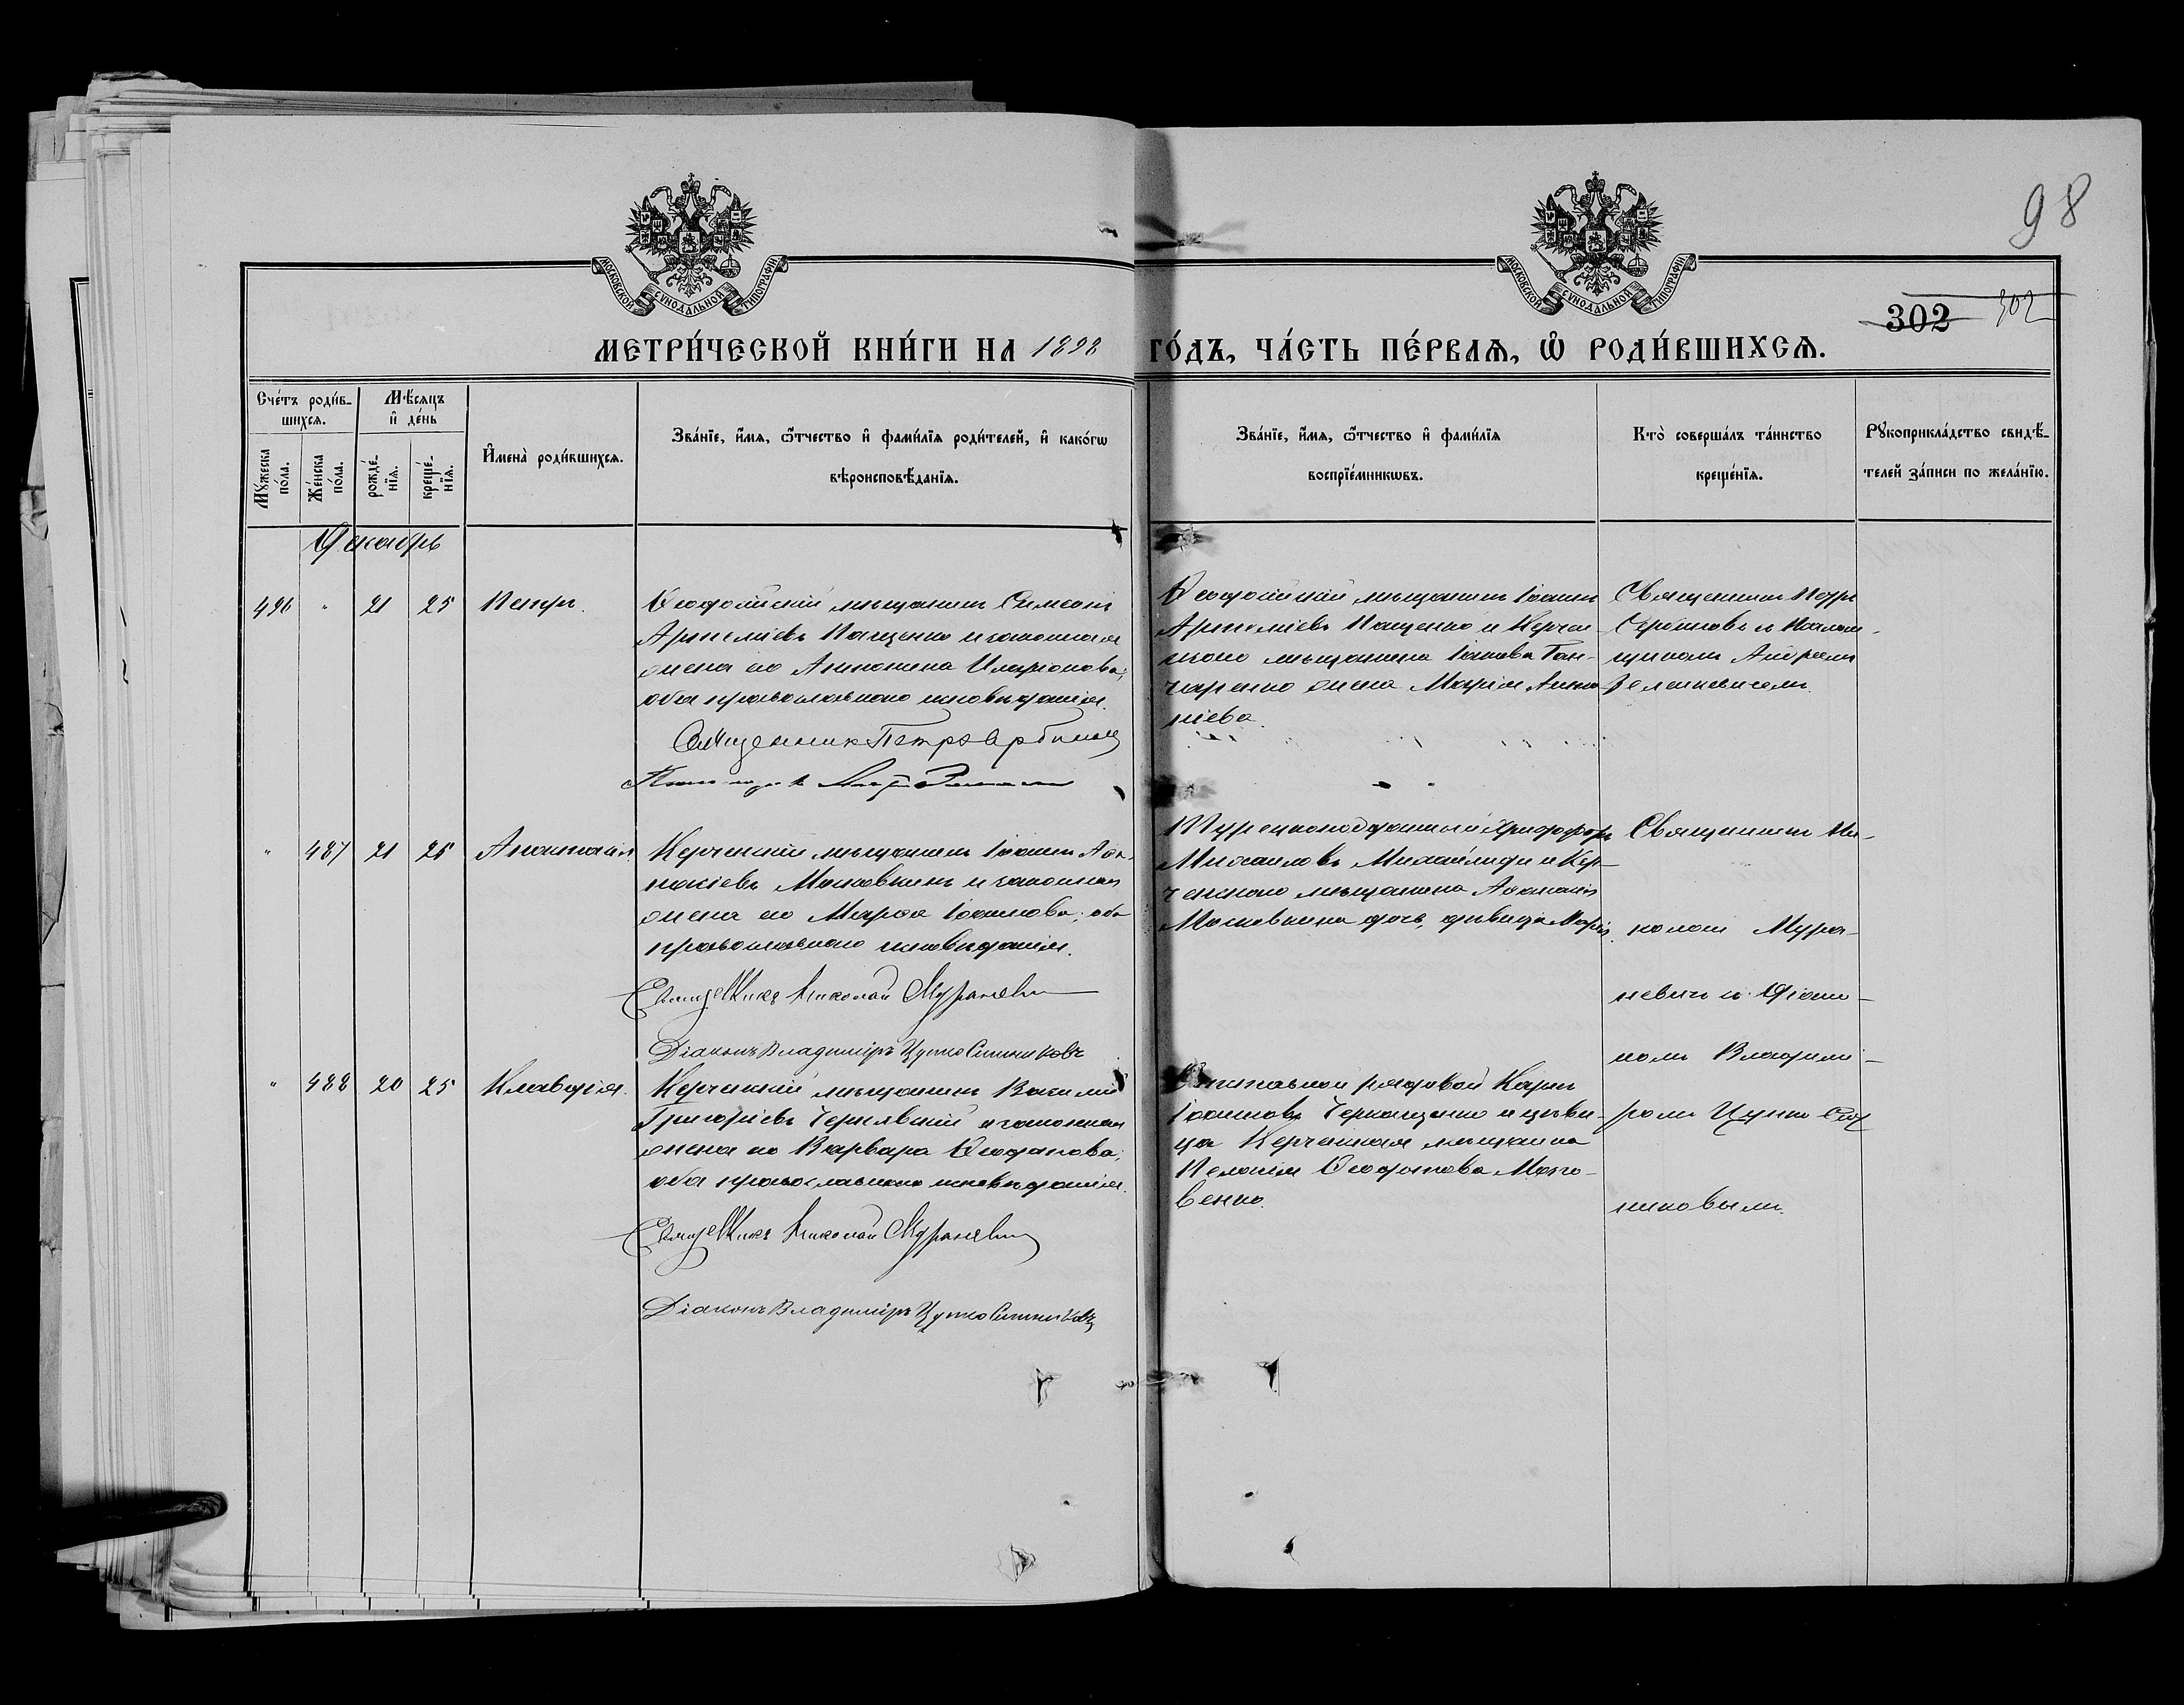 98
МОСКОВСКОЙ СѴНОДАЛЬНОЙ ТИПОГРАФІИ
МОСКОВСКОЙ СѴНОДАЛЬНОЙ ТИПОГРАФІИ
302 302
МЕТРИ́ЧЕСКОЙ КНИ́ГИ НА 1898 ГО́ДЪ, ЧА́СТЬ ПЕ́РВАѦ, Ѡ҆ РОДИ́ВШИХСѦ.
Сче́тъ роди́в-
шихсѧ.
Мѣ́сѧцъ
и҆ де́нь
Мꙋ́жеска
по́ла.
Же́нска
по́ла.
рожде́-
нїѧ.
креще́-
нїѧ.
И҆мена̀ роди́вшихсѧ.
Зва́нїе, и҆́мѧ, ѻ҆́тчество и҆ фами́лїѧ роди́телей, и҆ како́гѡ
вѣроисповѣ́данїѧ.
Зва́нїе, и҆́мѧ, ѻ҆́тчество и҆ фами́лїѧ
воспрїе́мникѡвъ.
Кто̀ соверша́лъ та́инство
креще́нїѧ.
Рꙋкоприкла́дство свидѣ́-
телей за́писи по жела́нїю.
Декабрь
496 " 21 25 Петръ.
Ѳеодосійскій мѣщанинъ Симеонъ
Пащенко и законная
жена его Антонина Иларіонова;
оба православнаго исповѣданія.
Священникъ Петръ Сербиновъ
Ѳеодосійскій мѣщанинъ Іоаннъ
Пащенко и Керчен-
скаго мѣщанина Іакова Гон-
чаренко жена Марія Анто-
ніева.
Священникъ Петръ
Сербиновъ съ Псалом-
щикомъ Андреемъ
Зеленкевичемъ.
" 487 21 25 Анастасія
Керченскій мѣщанинъ Іоаннъ Аѳа-
насіевъ Московкинъ и законная
жена его Марѳа Іоаннова; оба
православнаго исповѣданія.
Священникъ Николай Мураневичъ
Діаконъ Владиміръ Цупко Ситниковъ
Турецкоподданный Христофоръ
Михаиловъ Михайлиди и Кер-
ченскаго мѣщанина Аѳанасія
Московкина дочь, дѣвица Марія.
Священникъ Ни-
колай Мура-
невичъ съ Діако-
номъ Владимі-
ромъ Цупко Сит
никовымъ.
" 488 20 25 Клавдія.
Керченскій мѣщанинъ Василій
Григоріевъ Чернявскій и законная
жена его Варвара Ѳеофанова;
оба православнаго исповѣданія.
Священникъ Николай Мураневичъ
Діаконъ Владиміръ Цупко Ситниковъ
Отставной рядовой Карпъ
Іоанновъ и дѣви-
ца Керченская мѣщанка
Пелагія Ѳеофанова
венко.